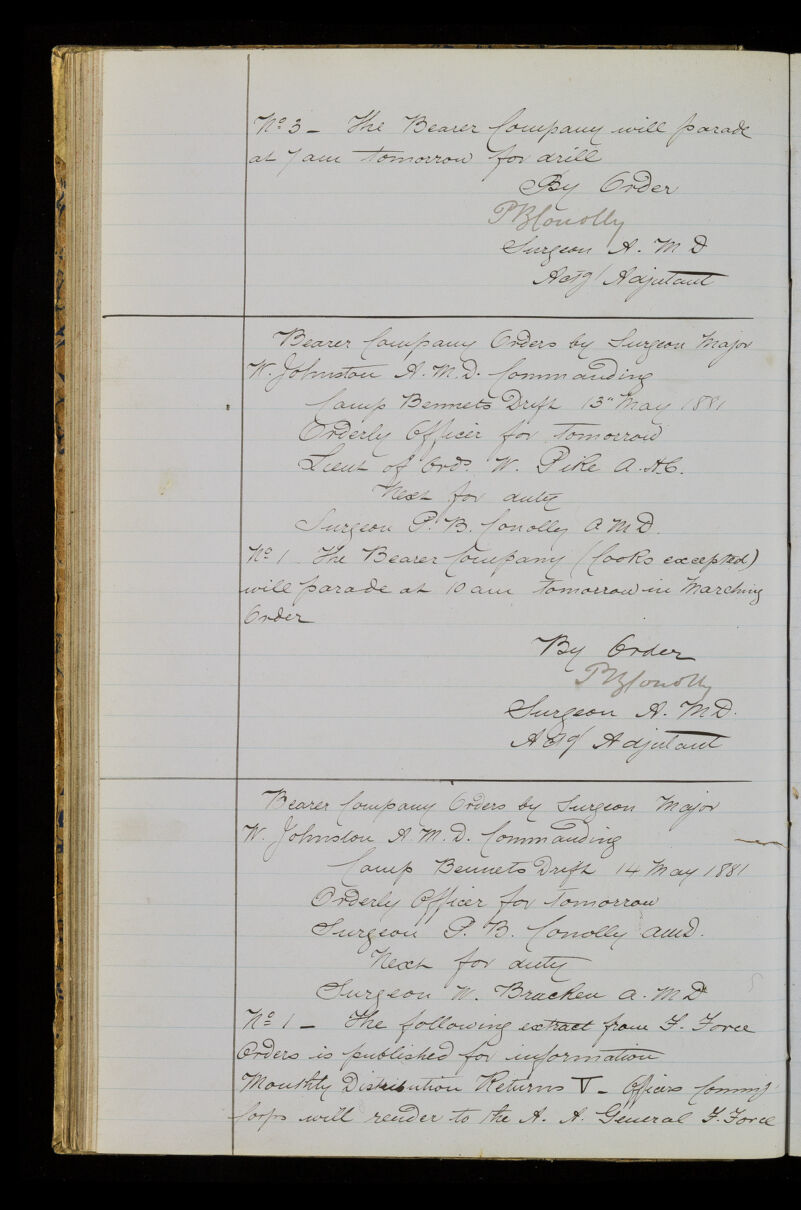 No 3 - The Bearer Company will parade
at 7 am tomorrow for drill
By Order
P B Conolly
Surgeon A. M D
Actg Adjutant
Bearer Company Orders by Surgeon Major
W. Johnston A. M. D. Commanding
Camp Bennets Drift 13" May 1881
Orderly Officer for tomorrow
Lieut of Ords. W. Pike A. H. C.
Next for duty
Surgeon P. B. Conolly A M D.
No 1 The Bearer Company (Cooks excepted)
will parade at 10 am tomorrow in Marching
Order
By Order
P B Conolly
Surgeon A. M D.
Actg Adjutant
Bearer Company Orders by Surgeon Major
W. Johnston A. M. D. Commanding
Camp Bennets Drift 14 May 1881
Orderly Officer for tomorrow
Surgeon P. B. Conolly amd.
Next for duty
Surgeon W. Bracken A. M D
No 1 - The following extract from F. Force
Orders is published for information
Monthly Distribution Returns V - Officers Commg
Corps will render to the A. A. General F. Force